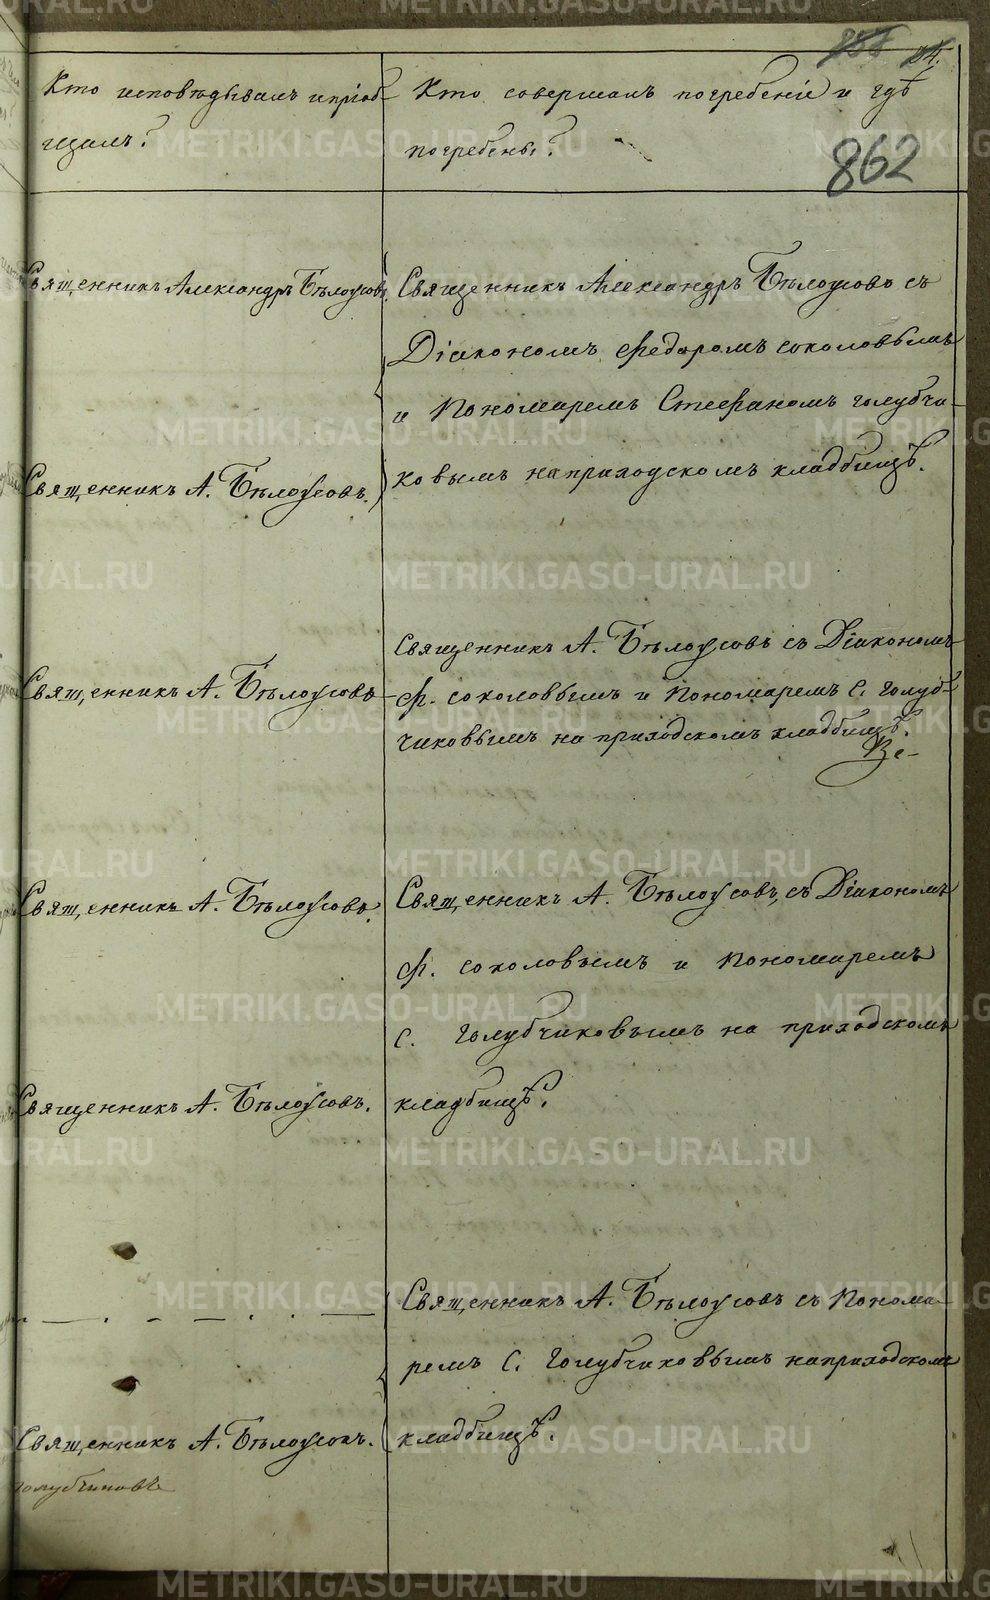 862
Кто исповѣдывалъ и пріоб-
щалъ?
Кто совершалъ погребеніе и гдѣ
погребены?
Священникъ Александръ Бѣлоусовъ
Священникъ Александръ Бѣлоусовъ съ
Діакономъ Ѳедоромъ Соколовымъ
и Пономаремъ Стефаномъ Голубчи-
ковымъ на приходскомъ кладбищѣ.
Священникъ А. Бѣлоусовъ.
Священникъ А. Бѣлоусовъ
Священникъ А. Бѣлоусовъ съ Діакономъ
Ѳ. Соколовымъ и Пономаремъ С. Голуб-
чиковымъ на приходскомъ кладбищѣ.
Священникъ А. Бѣлоусовъ.
Священникъ А. Бѣлоусовъ, съ Діакономъ
Ѳ. Соколовымъ и Пономаремъ
С. Голубчиковымъ на приходскомъ
кладбищѣ.
Священникъ А. Бѣлоусовъ.
Священникъ А. Бѣлоусовъ съ Понома-
ремъ С. Голубчиковымъ на приходскомъ
кладбищѣ.
Священникъ А. Бѣлоусовъ.
Голубчиковъ
METRIKI.GASO-URAL.RU